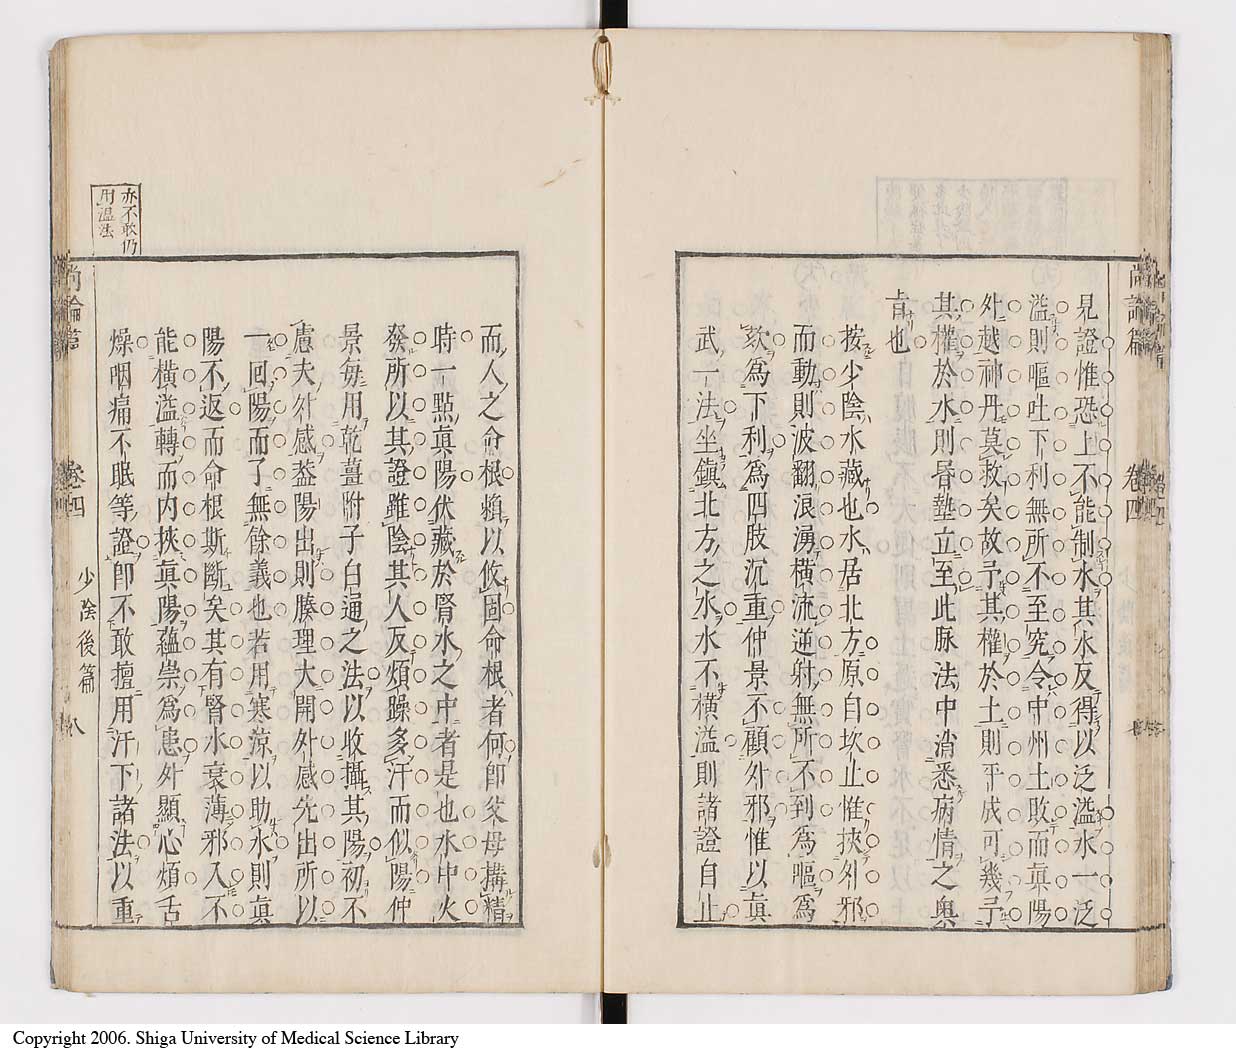 見證惟恐上不能制水其水反得以泛溢水一泛
溢則嘔吐下利無所不至究令中州土敗而真陽
外越神丹莫救矣故予其權於土則平成可幾予
其權於水則昏墊立至此脉法中消悉病情之奥
旨也
按少陰水藏也水居北方原自坎止惟挾外邪
而動則波翻浪湧橫流逆射無所不到爲嘔爲
欬爲下利爲四肢沉重仲景不顧外邪惟以真
武一法坐鎮北方之水水不橫溢則諸證自止
而人之命根賴以攸固命根者何卽父母搆精
時一點真陽伏藏於腎水之中者是也水中火
發所以其證雖陰其人反煩躁多汗而似陽仲
景每用乾薑附子白通之法以收攝其陽初不
慮夫外感葢陽出則腠理大開外感先出所以
一回陽而了無餘義也若用寒涼以助水則真
陽不返而命根斯斷矣其有腎水衰薄邪入不
能橫溢轉而内挾真陽蘊崇爲患外顯心煩舌
燥咽痛不眠等證卽不敢擅用汗下諸法以重
亦不敢仍
用温法
尚論篇
卷四
少陰後篇
八
尚論篇
卷四
Copyright 2006. Shiga University of Medical Science Library